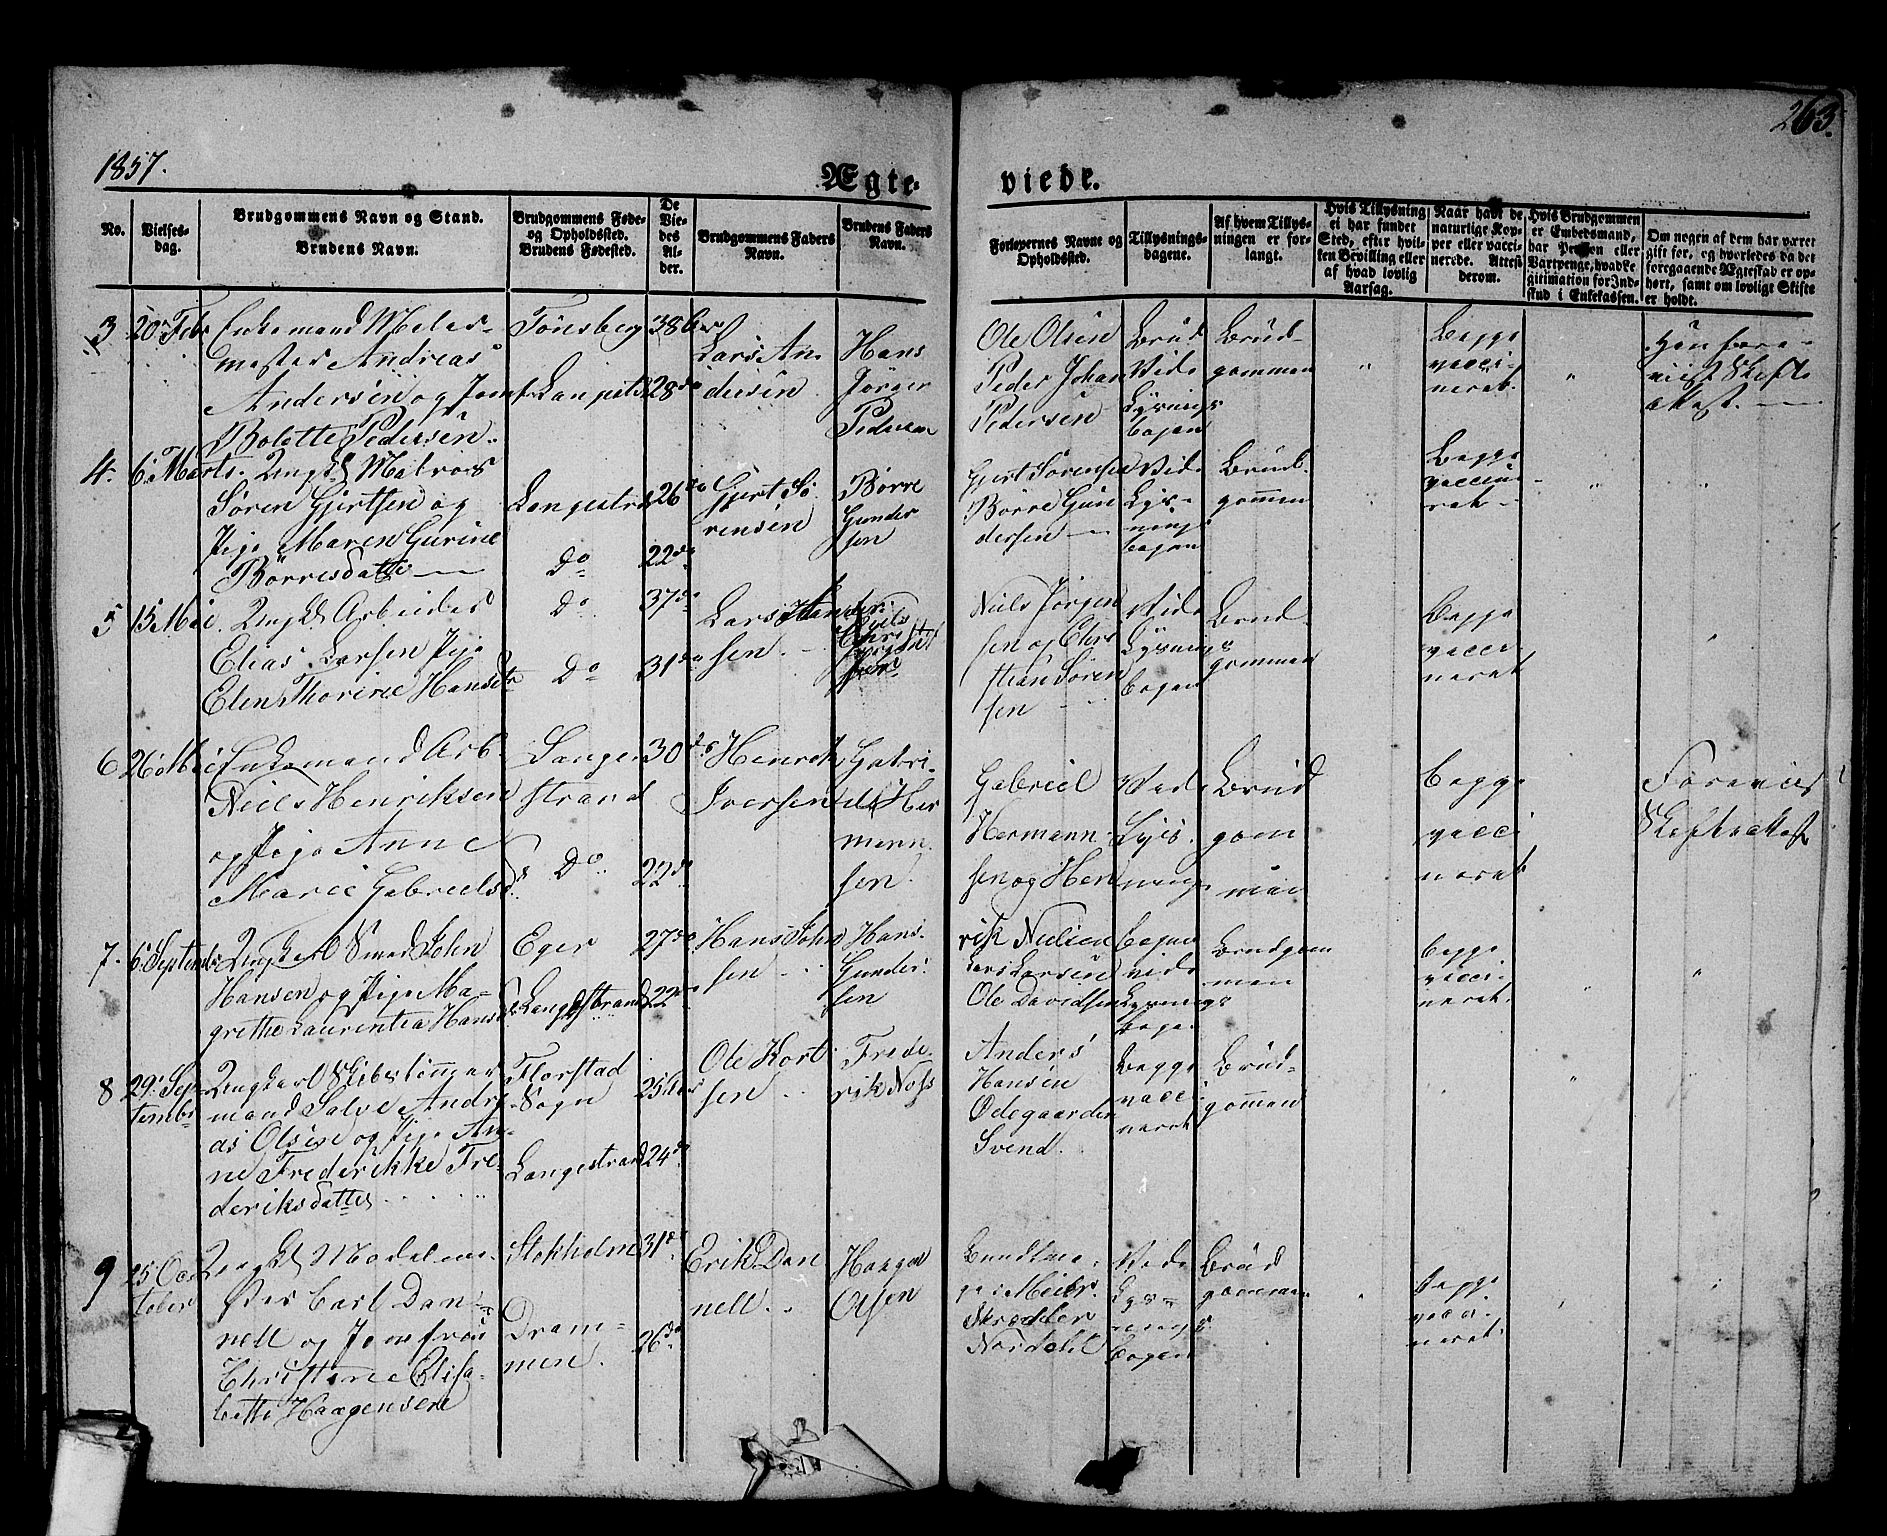 1857.
263.
Ægte-
viede.
No.
Vielses-
dag.
Brudgommens Navn og Stand.
Brudens Navn.
Brudgommens Føde-
og Opholdssted.
Brudens Fødested.
De
Vie-
des
Al-
der.
Brudgommens Faders
Navn.
Brudens Faders
Navn.
Forlovernes Navne og
Opholdssted.
Tillysnings-
dagene.
Af hvem Tillys-
ningen er for-
langt.
Hvis Tillysning
ei har fundet
Sted, efter hvil-
ken Bevilling eller
af hvad lovlig
Aarsag.
Naar havt de
naturlige Kop-
per eller vacci-
nerede. Attest
derom.
Hvis Brudgommen
er Embedsmand,
har Pension eller
Vartpenge, hvad Le-
gitimation for Ind-
skud i Enkekassen.
Om nogen af dem har været
gift før, og hvorledes da det
foregaaende Ægteskab er op-
hørt, samt om lovligt Skifte
er holdt.
3
20 Febr
Enkemand Maler-
mester Andreas
Andersen og Jomf
Bolette Pedersen
Tønsberg
38
28
Lars An-
dersen
Hans
Jørgen
Pedersen
Ole Olsen
Peder Johan
Pedersen
Vide
Lysnings
bogen
Brud-
gommen
Begge
vacci-
neret
4.
6 Marts
Ungk Matros
Søren Gjertsen og
Pige Maren Gurine
Børresdatter
Langestrand
Do
26
22
Gjert Sø-
rensen
Børre
Gunder
sen
Gjert Sørensen
Børre Gun
dersen
Vide
Lys-
nings
bogen
Brud-
gommen
Begge
vaccine-
ret
5
15 Mai
Ungk Arbeider
Elias Larsen Pige
Elen Thorine Hansdtr
Do
Do
37
31
Lars
sen
Niels Jørgen
sen og Chri
stian Søren
sen
Vide
Lysnings
bogen
Brud-
gommen
Begge
vacci-
neret
6
26 Mai
Enkemand Arb
Niels Henriksen
og Pige Anne
Marie Gabrielsd
Lange
strand
Do
30
22
Henrik
Iversen
Gabri-
el Her
mann-
sen
Gabriel
Hermann-
sen og Hen
rik Nielsen
Vide
Lys-
nings
bogen
Brud
gom
men
begge
vacci
neret
7.
6 September
Ungkarl Smed John
Hansen og Pige Ma-
grethe Laurentia Hansd
Eger
Langestrand
27
22
Hans John
sen
Hans
Gunder-
sen
Lars Larsen
Ole Davidsen
vide
Lysnings
bogen
Brudgom
men
begge
vacci-
neret
8
29 Sep-
tembr
Ungkarl Skibstømmer
mand Salve Andre
as Olsen og Pige An-
ne Frederikke Fre-
deriksdatter
Sogn
Langestrand
25
24
Ole Kort
sen
Frede-
rik
Anders
Hansen
Ødegaarden
Svend
Begge
vacci
neret
Brud-
gommen
9
25 Oc
tober
Ungk
Carl Dan-
nell og Jomfrue
Christiane Elisa-
beth Haagensen
Stokholm
Dram-
men.
31
26
Erik Dan
nell
Haagen
Olsen
Skrædder
Nordahl
Vide
Lys-
nings
bogen
Brud
gommen
Begge
vacci-
neret